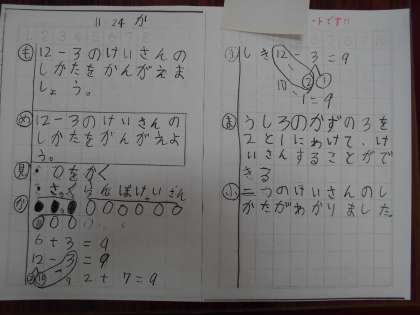 11.24 か
も 12-3のけいさんの
しかたをかんがえま
しょう。
め 12-3のけいさんの
しかたをかんがえよ
う。
見 ・○をかく
・さくらんぼけいさん
か
6+3=9
12-3=9
2+7=9
ートです!!
しき 12-3=9
10 2 1
1=9
ま うしろのかずの3を
2と1にわけて、け
いさんすることがで
きる
ふ 二つのけいさんのし
かたがわかりました。